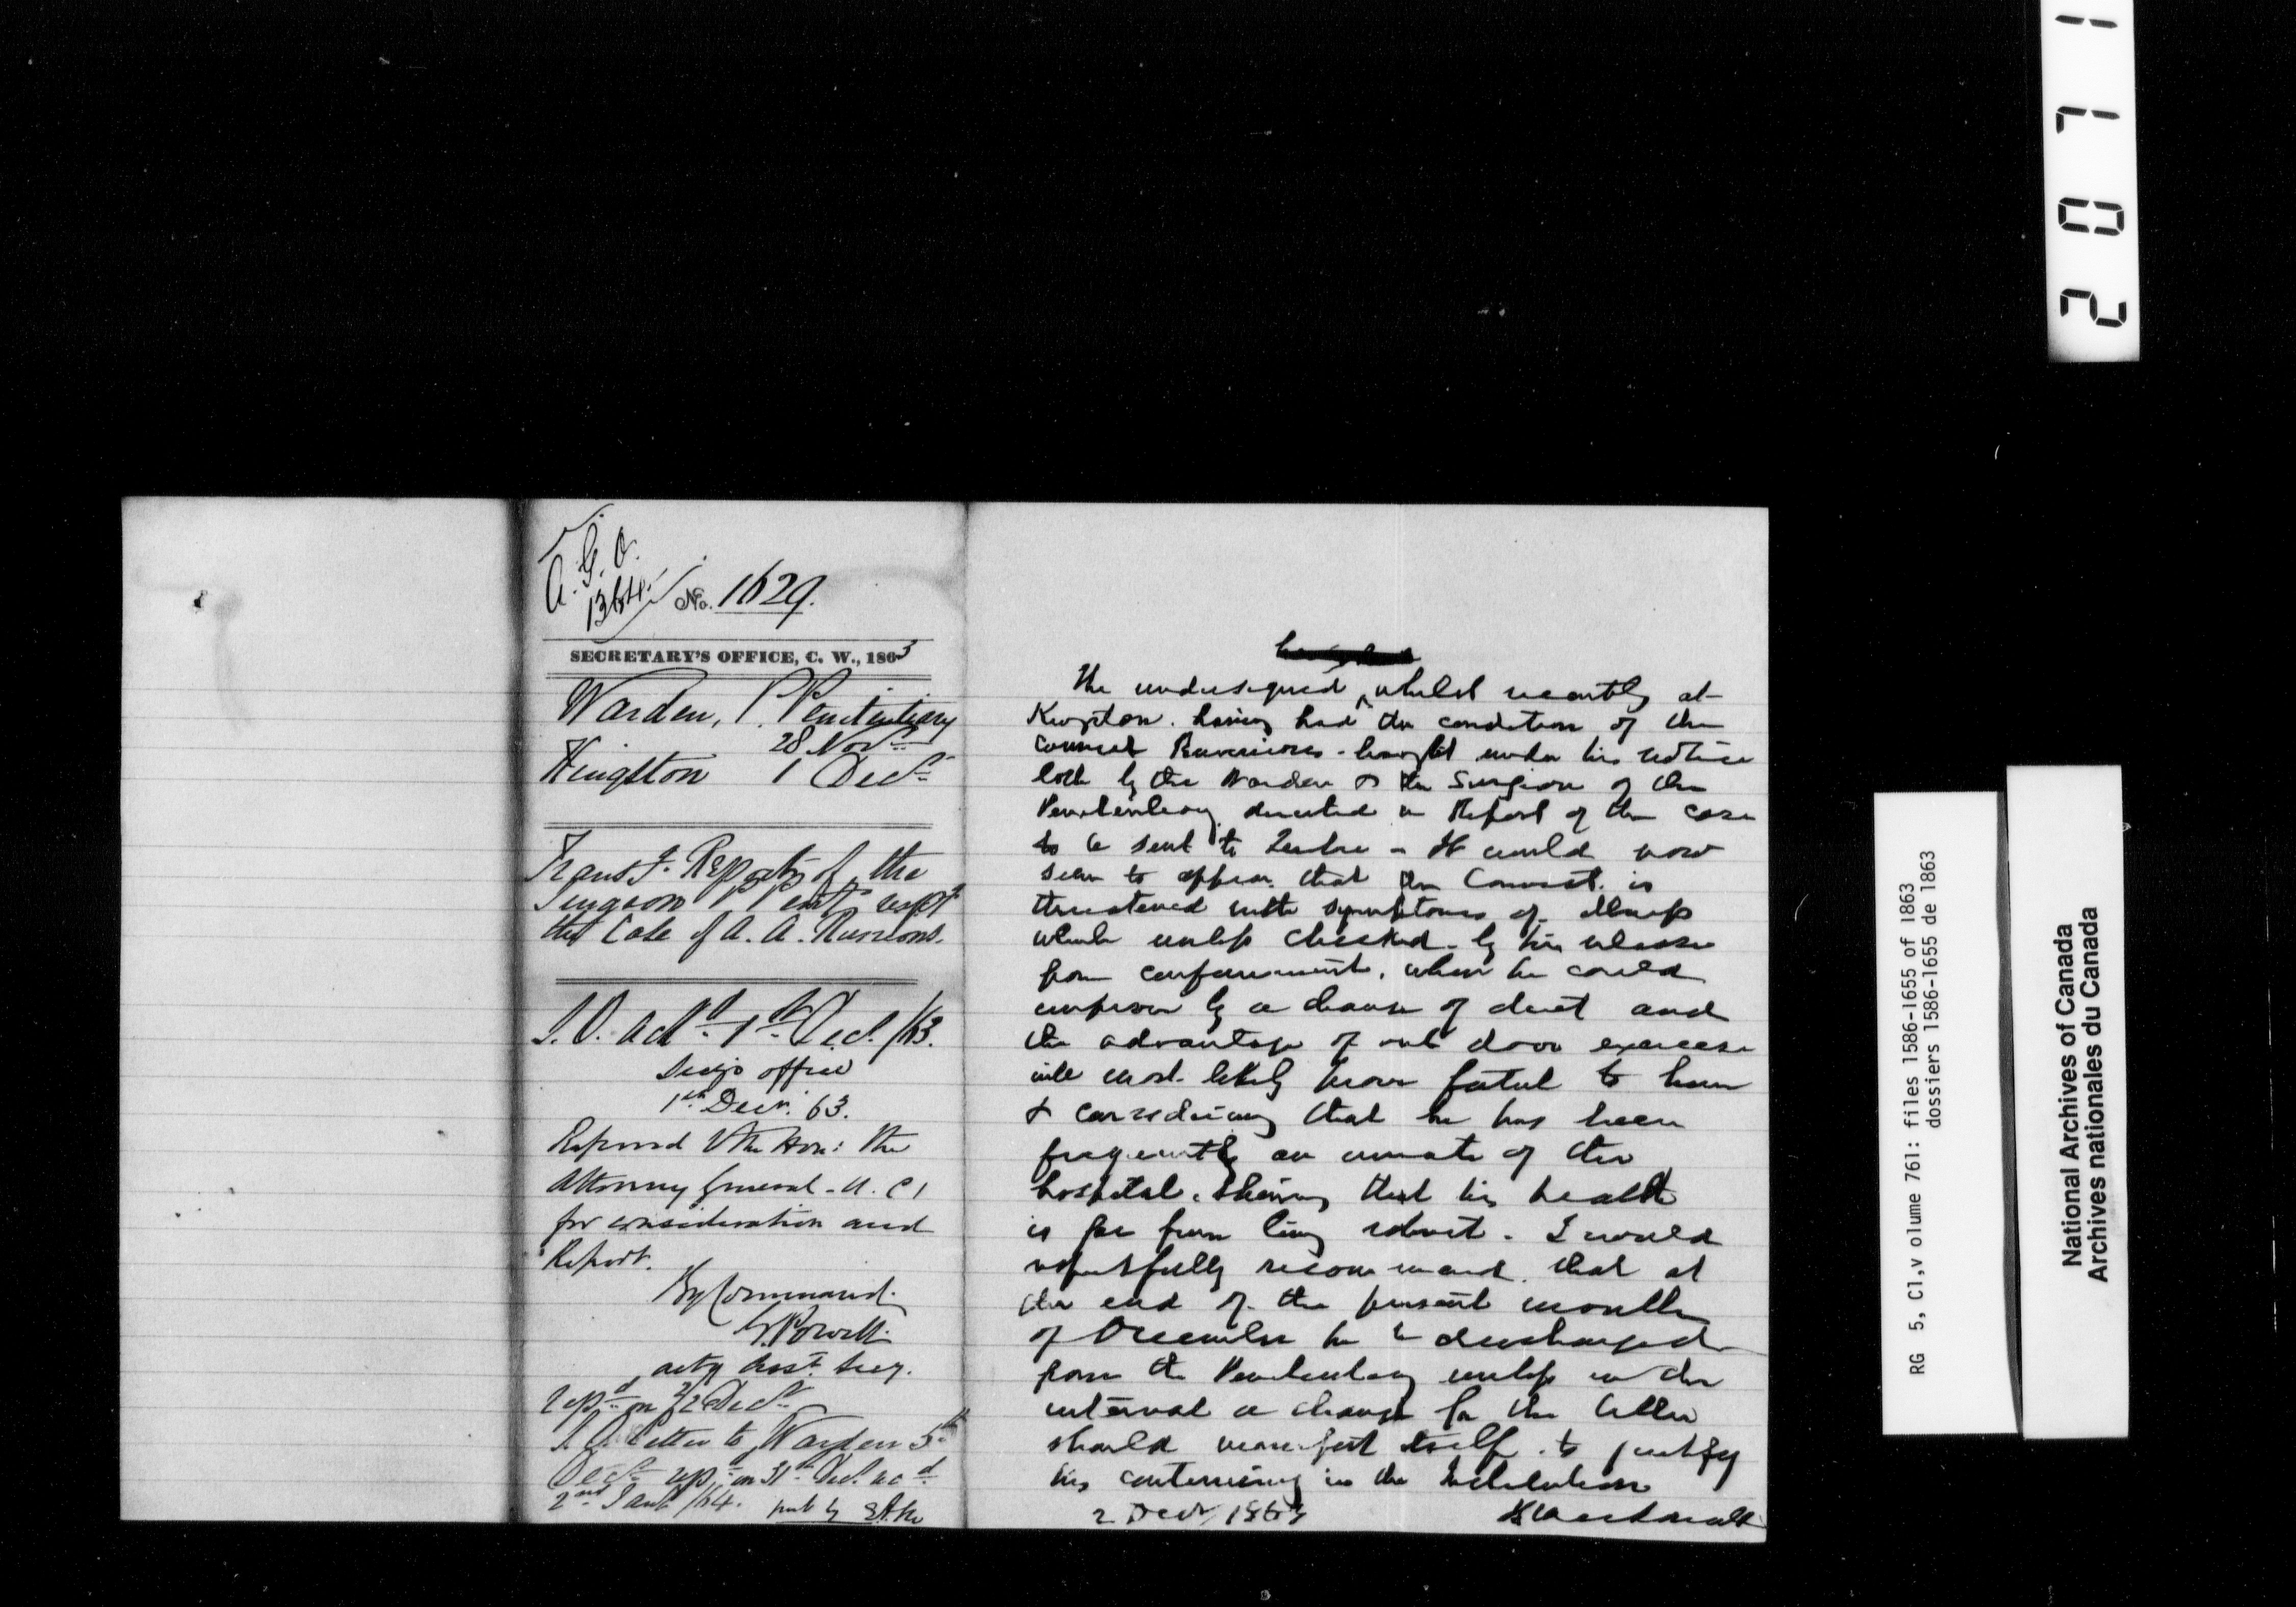 A. G. O.
1364.
No. 1629.
SECRETARY'S OFFICE, C. W., 1863
Warden, P. Penitentiary
28 Novr
Kingston 1 Decr
Transg. Reports of the
Surgeon P Pent respg
the Case of A. A. Runions.
1st Decr /63.
Secy's office
1st Decr. 63.
Referred to the Hon: the
Attorney General - U. C.
for consideration and
Report.
By Command.
G Powell
actg Asst. Secy.
repd on 2/2 Decr
Letter to Warden 5th
Decr on 31st Decr
2nd Jany /64. put by
The undersigned, whilst recently at
Kingston. having had the condition of the
convict Runnions - brought under his notice
both by the Warden & the Surgeon of the
Penitentiary directed a Report of the case
to be sent to - It would now
seem to appear that the Convict is
threatened with symptoms of illness
which unless checked - by his release
from confinement, when he could
improve by a change of diet and
the advantage of out door exercise
will most likely prove fatal to him
& considering that he has been
frequently an inmate of the
hospital, shewing that his health
is far from being robust - I would
respectfully recommend that at
the end of the present month
of December he be discharged
from the Penitentiary unless in the
interval a change for the better
should manifest itself to justify
his continuing in the Institution
2 Decr 1863
2071
RG 5, C1,v olume 761: files 1586-1655 of 1863
dossiers 1586-1655 de 1863
National Archives of Canada
Archives nationales du Canada